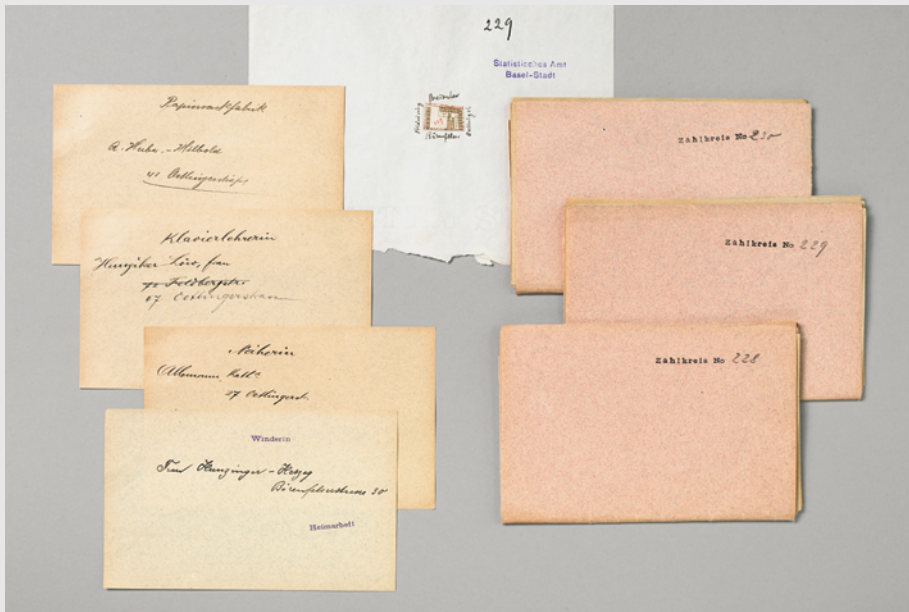 229
Statistisches Amt
Basel-Stadt
Bärenfelser
Papiersackfabrik
A. Huber-Wilbold
41 Oetlingerstrasse
Klavierlehrerin
Hunziker Frau
Feldbergstr
57 Oetlingerstrasse
Näherin
Kath.
57 Oetlingerst.
Winderin
Frau Hunzinger-Herzog
Bärenfelserstrasse 30
Heimarbeit
Zählkreis No 230
Zählkreis No 229
Zählkreis No 228